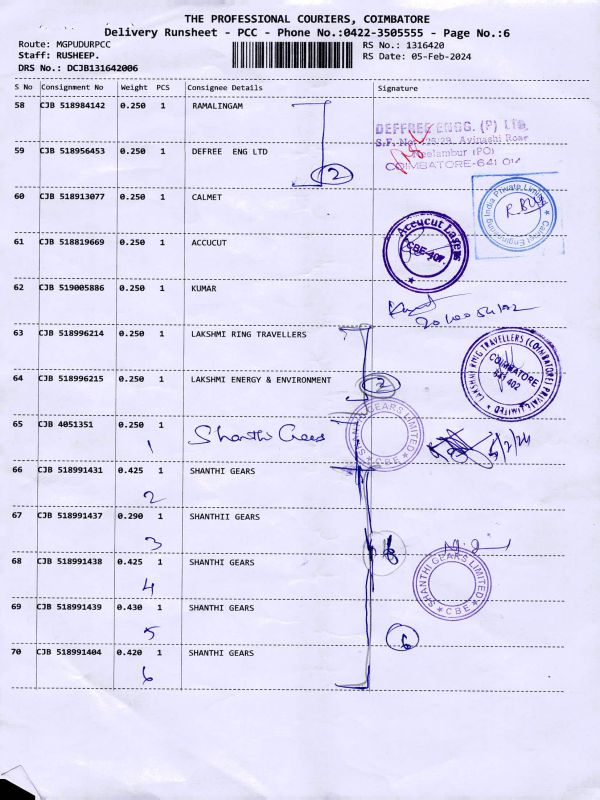 THE PROFESSIONAL COURIERS, COIMBATORE
Delivery Runsheet - PCC - Phone No.:0422-3505555 - Page No.:6
Route: MGPUDURPCC
RS No.: 1316420
Staff: RUSHEEP.
RS Date: 05-Feb-2024
DRS No.: DCJB131642006
S No Consignment No Weight PCS Consignee Details Signature
58 CJB 518984142 0.250 1 RAMALINGAM
DEFFREE ENGG. (P) Ltd.
Avinashi Road
(PO)
COIMBATORE-641
59 CJB 518956453 0.250 1 DEFREE ENG LTD
2
60 CJB 518913077 0.250 1 CALMET
India Private Limited
61 CJB 518819669 0.250 1 ACCUCUT
Accucut Lasers
CBE-407.
62 CJB 519005886 0.250 1 KUMAR
63 CJB 518996214 0.250 1 LAKSHMI RING TRAVELLERS
LAKSHMI RING TRAVELLERS (COIMBATORE) PRIVATE LIMITED
COIMBATORE
641 402
64 CJB 518996215 0.250 1 LAKSHMI ENERGY & ENVIRONMENT
2
65 CJB 4051351 0.250 1 Shanthi Gears
1
SHANTHI GEARS LIMITED
CBE
5/2/24
66 CJB 518991431 0.425 1 SHANTHI GEARS
2
67 CJB 518991437 0.290 1 SHANTHII GEARS
3
68 CJB 518991438 0.425 1 SHANTHI GEARS
4
SHANTHI GEARS LIMITED
CBE
69 CJB 518991439 0.430 1 SHANTHI GEARS
5
6
70 CJB 518991404 0.420 1 SHANTHI GEARS
6